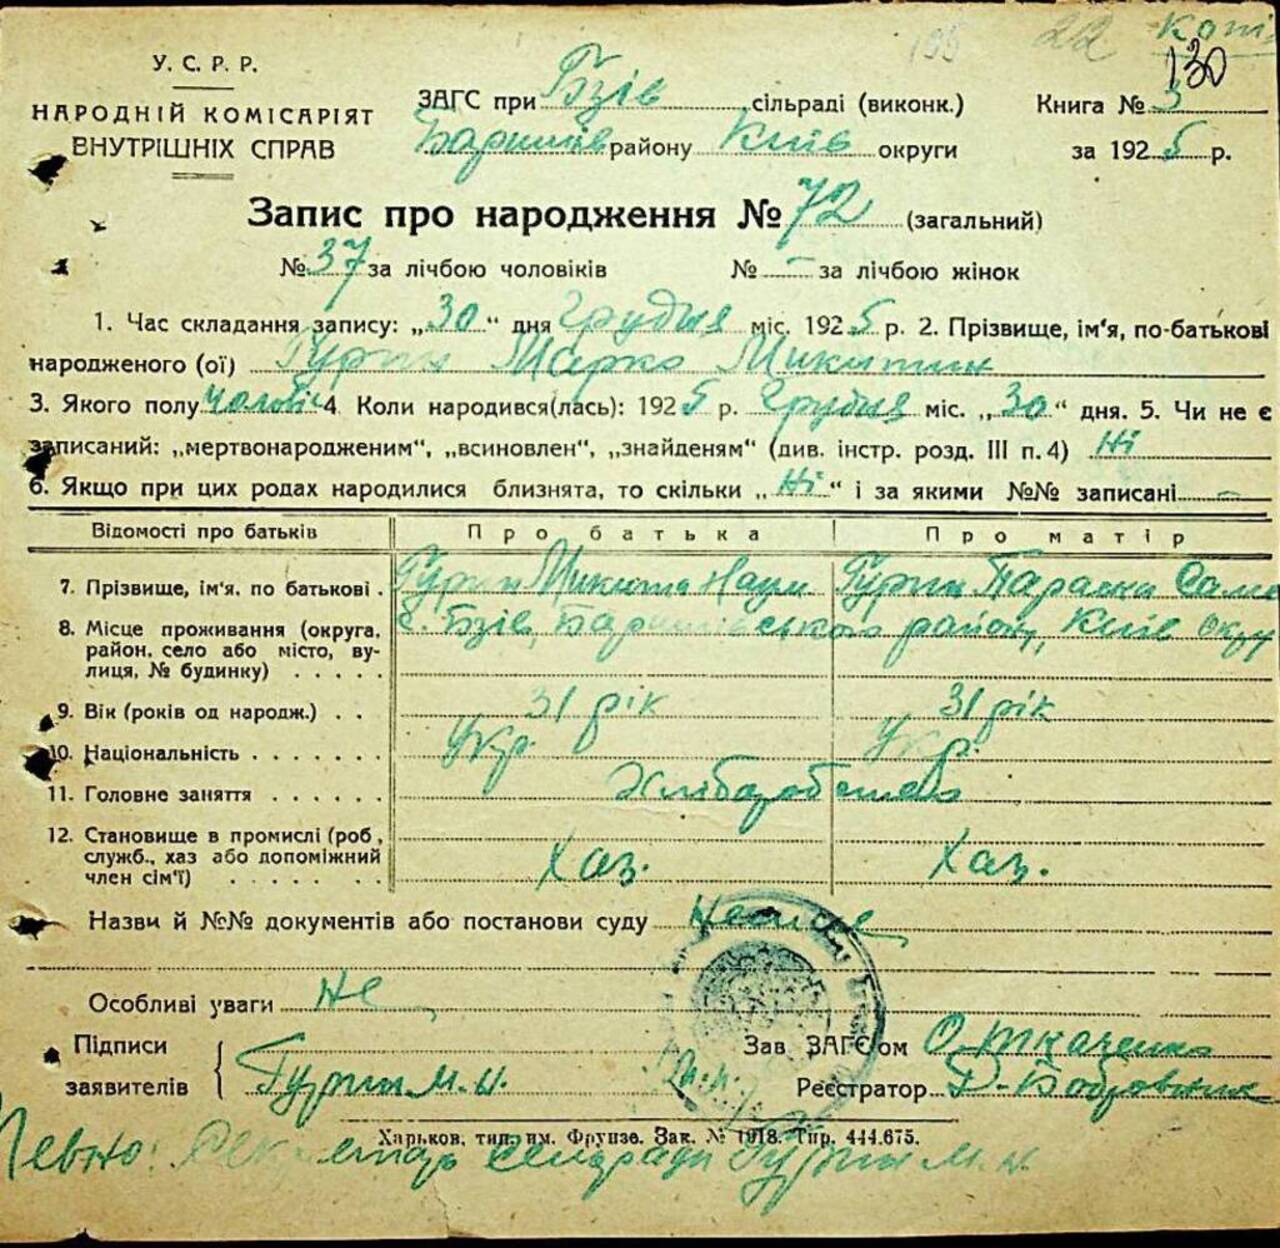 195 22 Копі
130
У. С. Р. Р.
НАРОДНІЙ КОМІСАРІЯТ
ВНУТРІШНІХ СПРАВ
ЗАГС при Бзів сільраді (виконк.) Книга № 3
Баришів району Київ округи за 1925 р.
Запис про народження № 72 (загальний)
№ 37 за лічбою чоловіків № - за лічбою жінок
1. Час складання запису: „30“ дня Грудня міс. 1925 р. 2. Прізвище, ім‘я, по-батькові
народженого (ої) Гурин Марко Микитин
3. Якого полу чоловіч 4 Коли народився(лась): 1925 р. Грудня міс. „30“ дня. 5. Чи не є
записаний: „мертвонародженим“, „всиновлен“, „знайденям“ (див. інстр. розд. III п. 4) Ні
6. Якщо при цих родах народилися близнята, то скільки „Ні“ і за якими №№ записані -
Відомості про батьків Про батька Про матір
7. Прізвище, ім‘я, по батькові . Гурин Микита Наум Гурин Параска Саме
8. Місце проживання (округа, с. Бзів, Баришівського району, Київ Окру
район, село або місто, ву-
лиця, № будинку) . . . . .
9. Вік (років од народж.) . . 31 рік 31 рік
10. Національність . . . . . . . Укр. Укр.
11. Головне заняття . . . . . . Хліборобство
12. Становище в промислі (роб.,
служб., хаз або допоміжний Хаз. Хаз.
член сім‘ї) . . . . . .
Назви й №№ документів або постанови суду
Особливі уваги Не
Підписи Зав ЗАГС‘ом О. Ткаченко
заявителів Гурин М. Н. Реєстратор Д. Бобровник
Харьков, тип. им. Фрунзе. Зак. № 1918. Тир. 444.675.
Певно: Секретарь сельради Гурин М. Н.